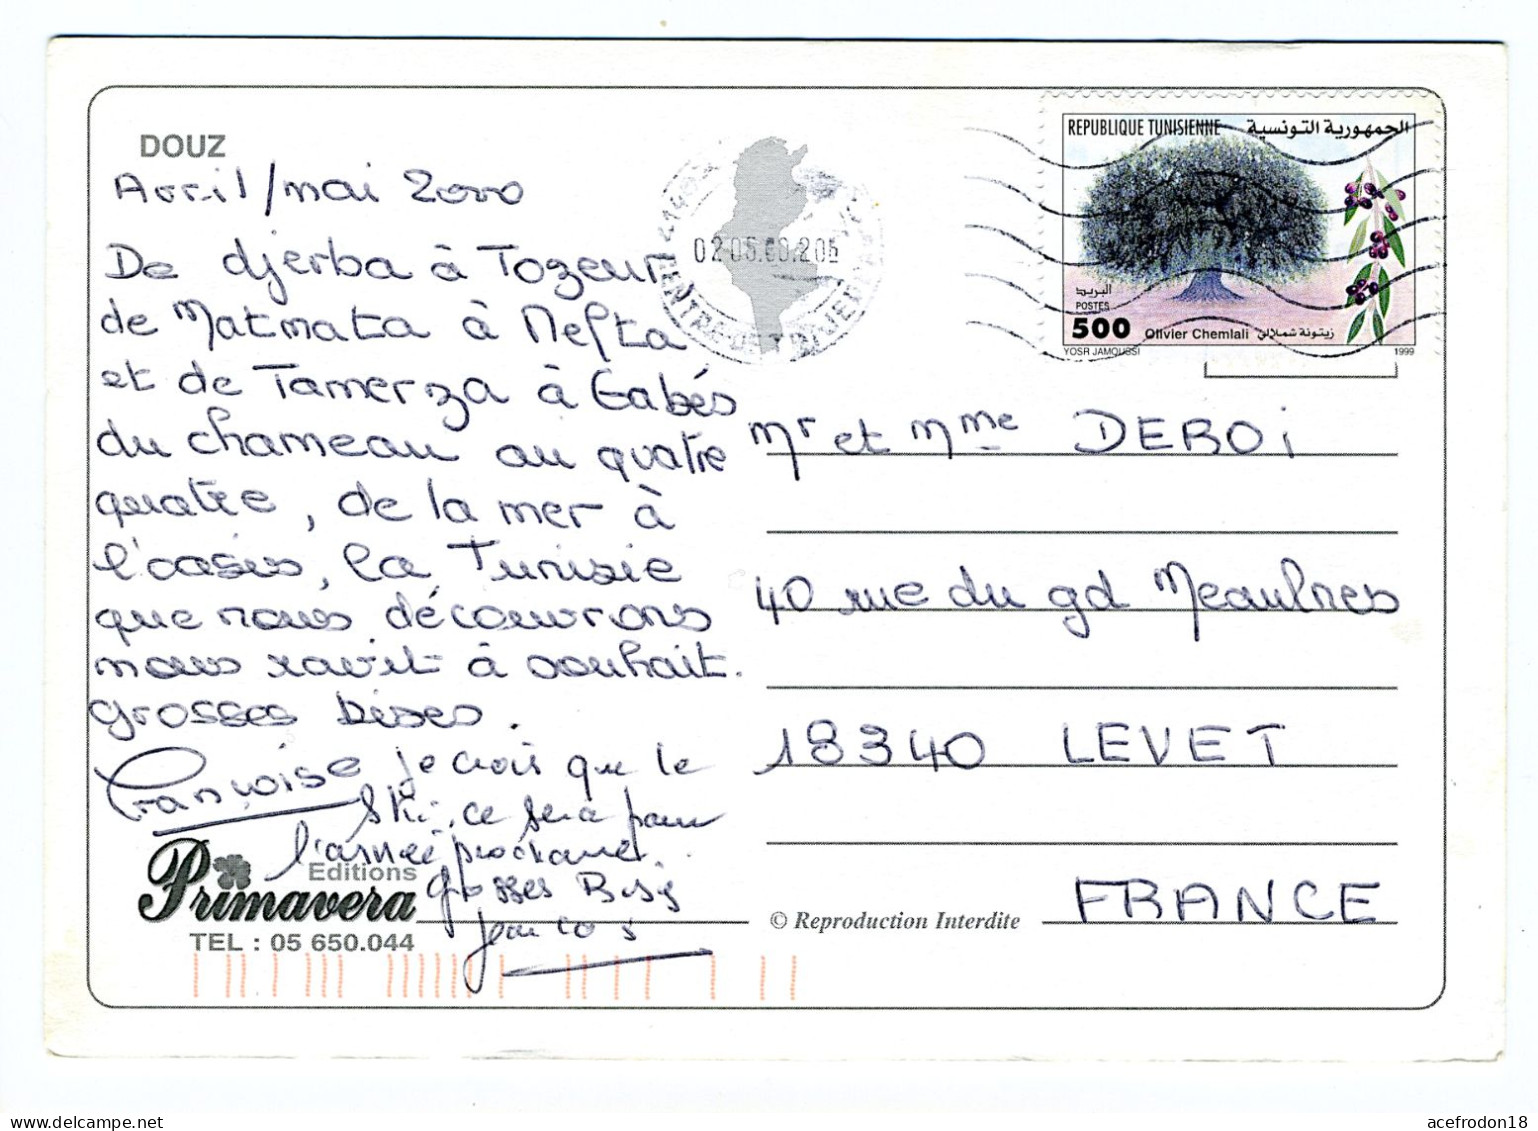 DOUZ
Avril/mai 2000
De djerba à Tozeur
de Matmata à Nefta
et de Tamerza à Gabés
du chameau au quatre
quatre, de la mer à
l'oasis, la Tunisie
que nous découvrons
nous ravit à souhait.
grosses bises.
Françoise
je crois que le
ski, ce sera pour
l'année prochaine.
grosses Bises
Editions
Primavera
TEL : 05 650.044
02.05.00.20
REPUBLIQUE TUNISIENNE الجمهورية التونسية
البريد
POSTES
500 Olivier Chemlali زيتونة شملالي
YOSR JAMOUSSI 1999
Mr et Mme DEBOi
40 rue du gd Meaulnes
18340 LEVET
FRANCE
© Reproduction Interdite
acefrodon18